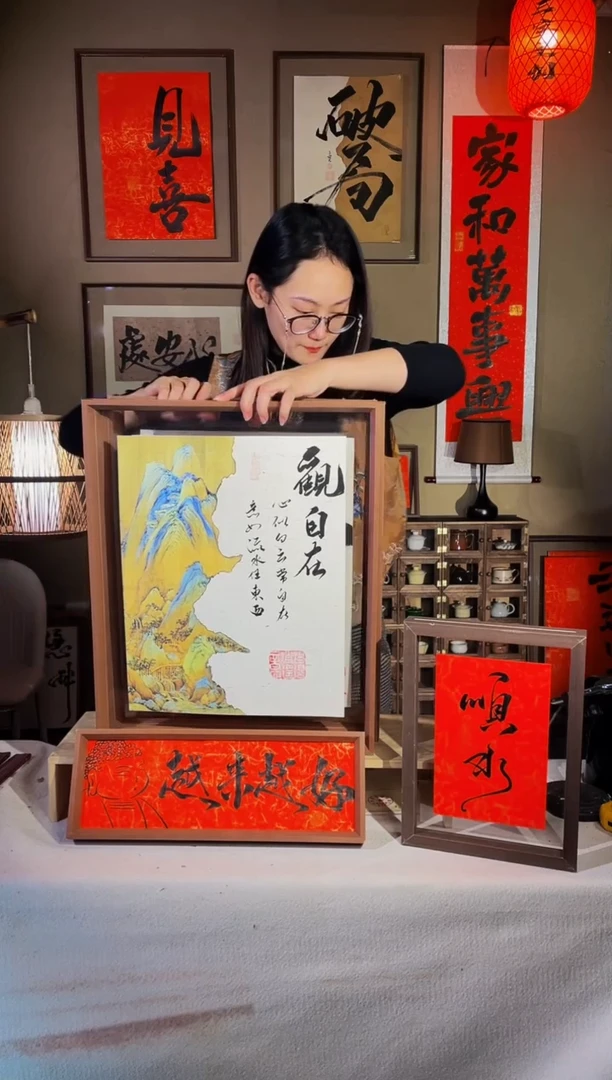 見喜
破局
家和萬事興
心安處
觀自在
心似白云常自在
意如流水任東西
越来越好
順水